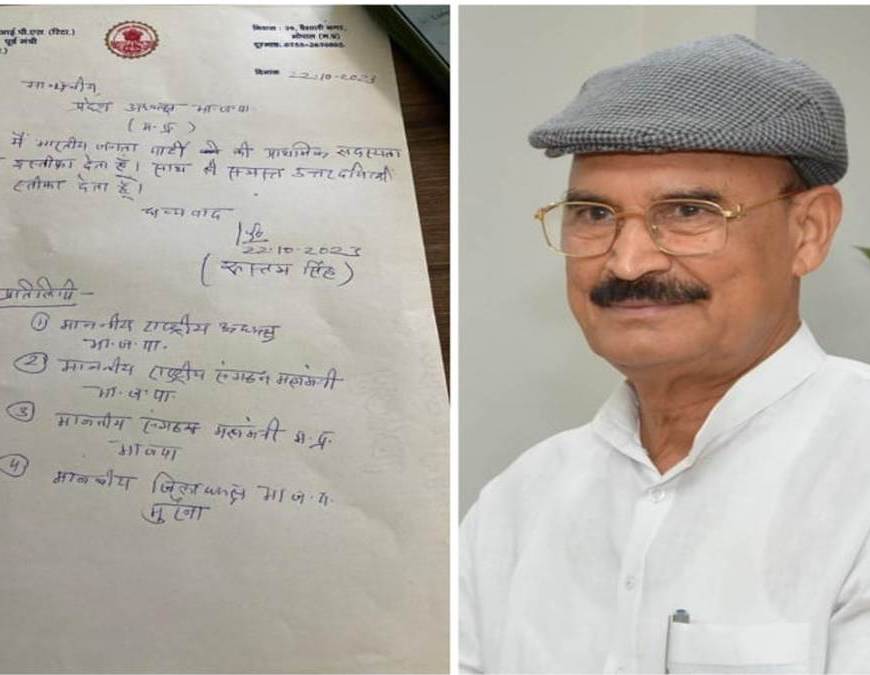 आई.पी.एस. (रिटा.)
पूर्व मंत्री
निवास : २०, वैशाली नगर,
भोपाल (म.प्र)
दूरभाष:
दिनांक 22-10-2023
माननीय,
प्रदेश अध्यक्ष भा.ज.पा.
(म.प्र)
मैं भारतीय जनता पार्टी की प्राथमिक सदस्यता
इस्तीफा देता हूँ। साथ ही समस्त उत्तरदायित्वों
स्तीफा देता हूँ।
धन्यवाद
22-10-2023
(रूस्तम सिंह)
प्रतिलिपी -
① माननीय राष्ट्रीय अध्यक्ष
भा.ज.पा.
② माननीय राष्ट्रीय संगठन महामंत्री
भा.ज.पा.
③ माननीय संगठन महामंत्री म.प्र.
भाजपा
④ माननीय जिलाध्यक्ष भा.ज.पा.
मुरैना